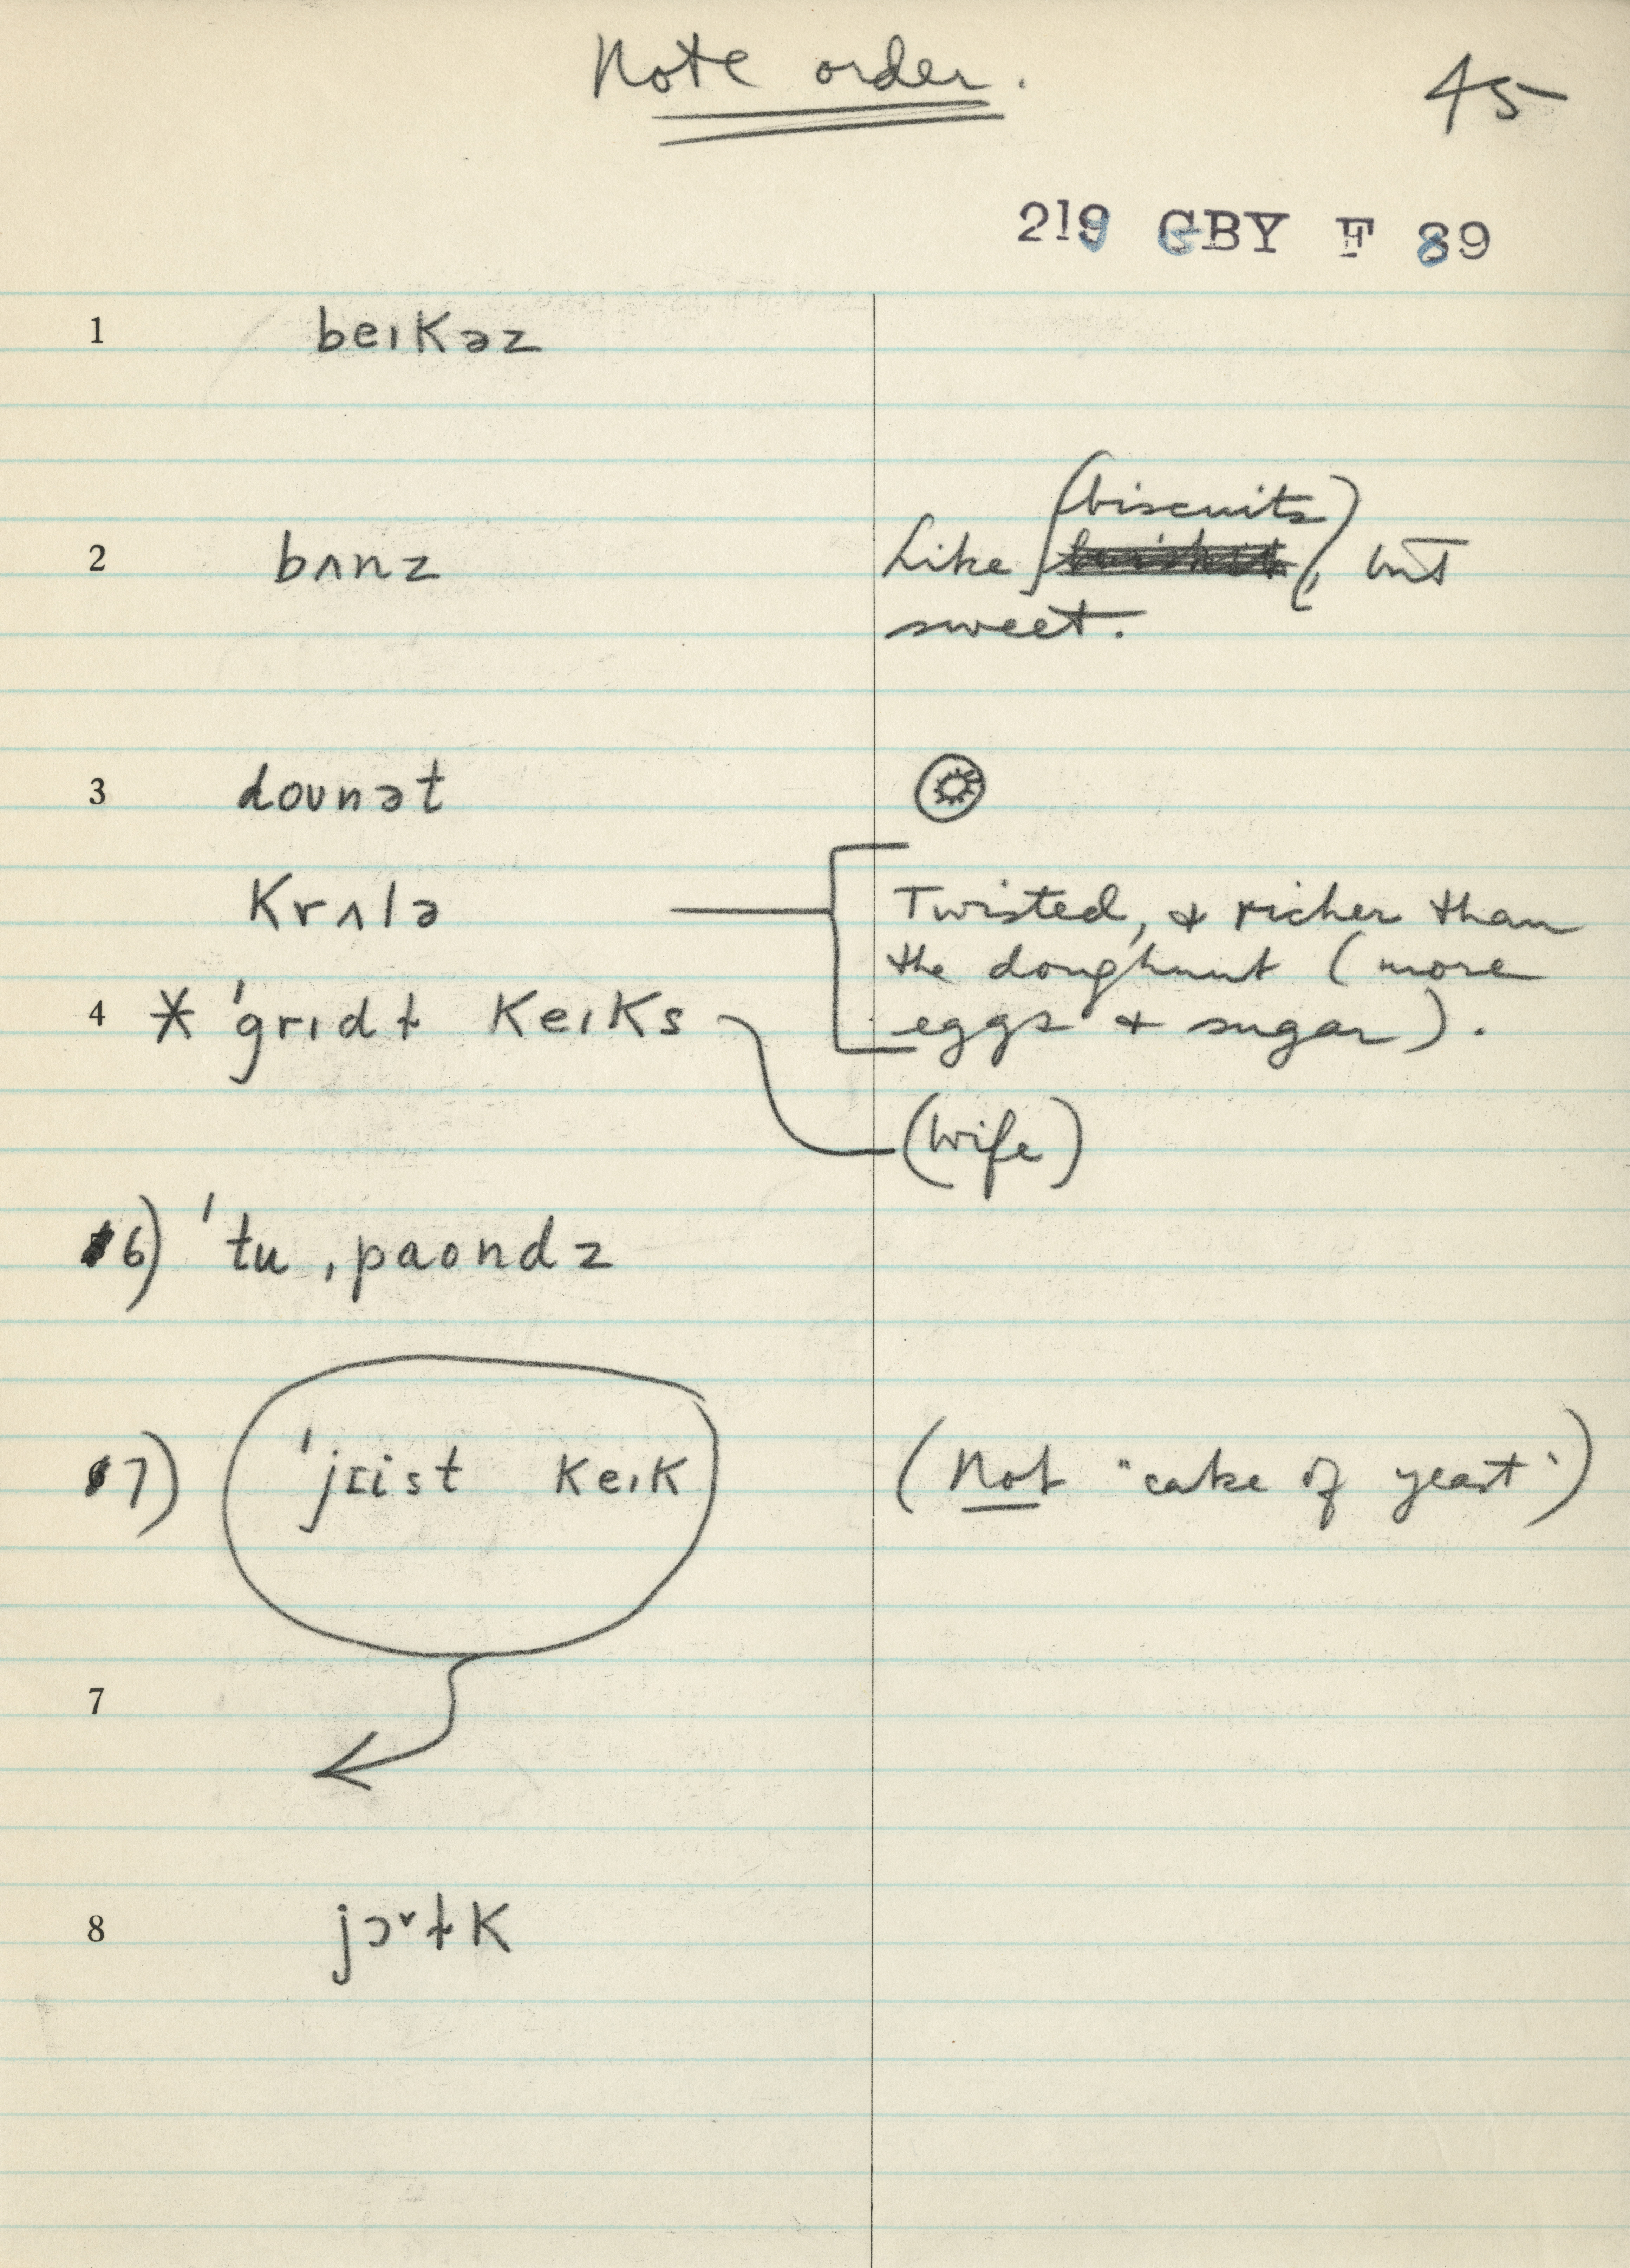 Note order.
45
219 GBY F 89
1 beɪkəz
2 bʌnz
(biscuits)
Like , but
sweet.
3 doʊnət
krʌlə
Twisted, & richer than
the doughnut (more
eggs & sugar).
4 * ˈgrɪdɫ keɪks
(wife)
6) ˈtu ˌpaʊndz
7) ˈjɪist keɪk
(Not "cake of yeast")
7
8 jɔ˅ɫk